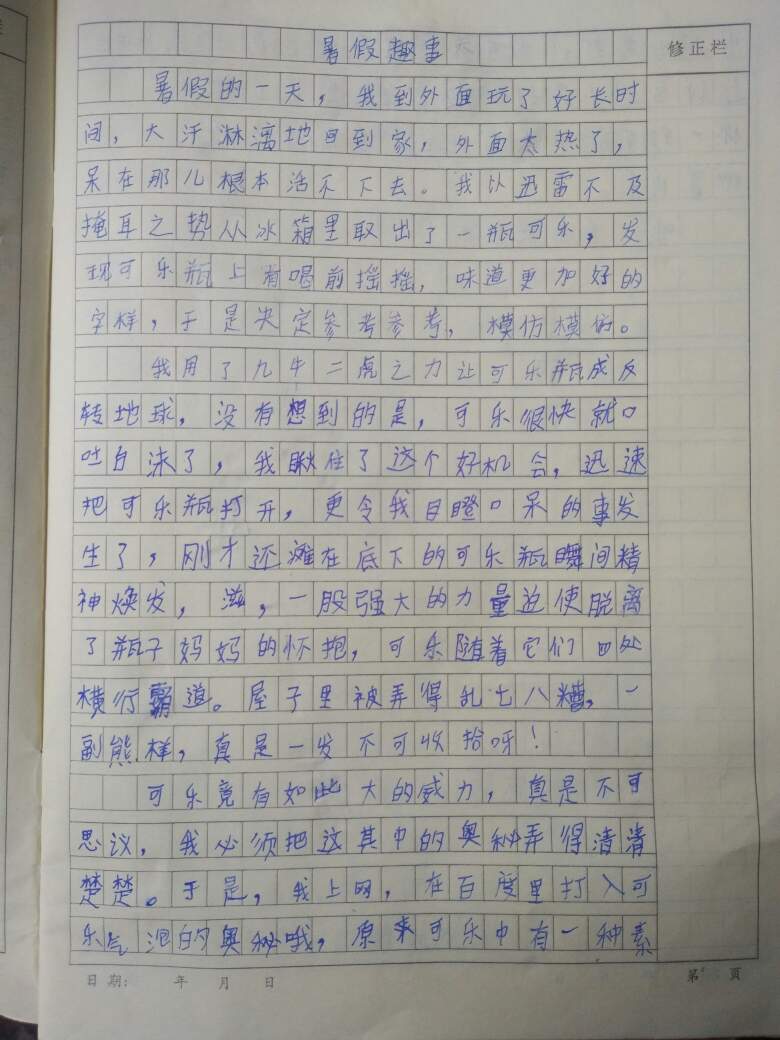 暑假趣事
修正栏
暑假的一天，我到外面玩了好长时
间，大汗淋漓地回到家，外面太热了，
呆在那儿根本活不下去。我以迅雷不及
掩耳之势从冰箱里取出了一瓶可乐，发
现可乐瓶上有喝前摇摇，味道更加好的
字样，于是决定参考参考，模仿模仿。
我用了九牛二虎之力让可乐瓶成反
转地球，没有想到的是，可乐很快就口
吐白沫了，我瞅住了这个好机会，迅速
把可乐瓶打开，更令我目瞪口呆的事发
生了，刚才还滩在底下的可乐瓶瞬间精
神焕发，滋，一股强大的力量迫使脱离
了瓶子妈妈的怀抱，可乐随着它们四处
横行霸道。屋子里被弄得乱七八糟，一
副熊样，真是一发不可收拾呀！
可乐竟有如此大的威力，真是不可
思议，我必须把这其中的奥秘弄得清清
楚楚。于是，我上网，在百度里打入可
乐气泡的奥秘哦，原来可乐中有一种素
日期： 年 月 日
第 页